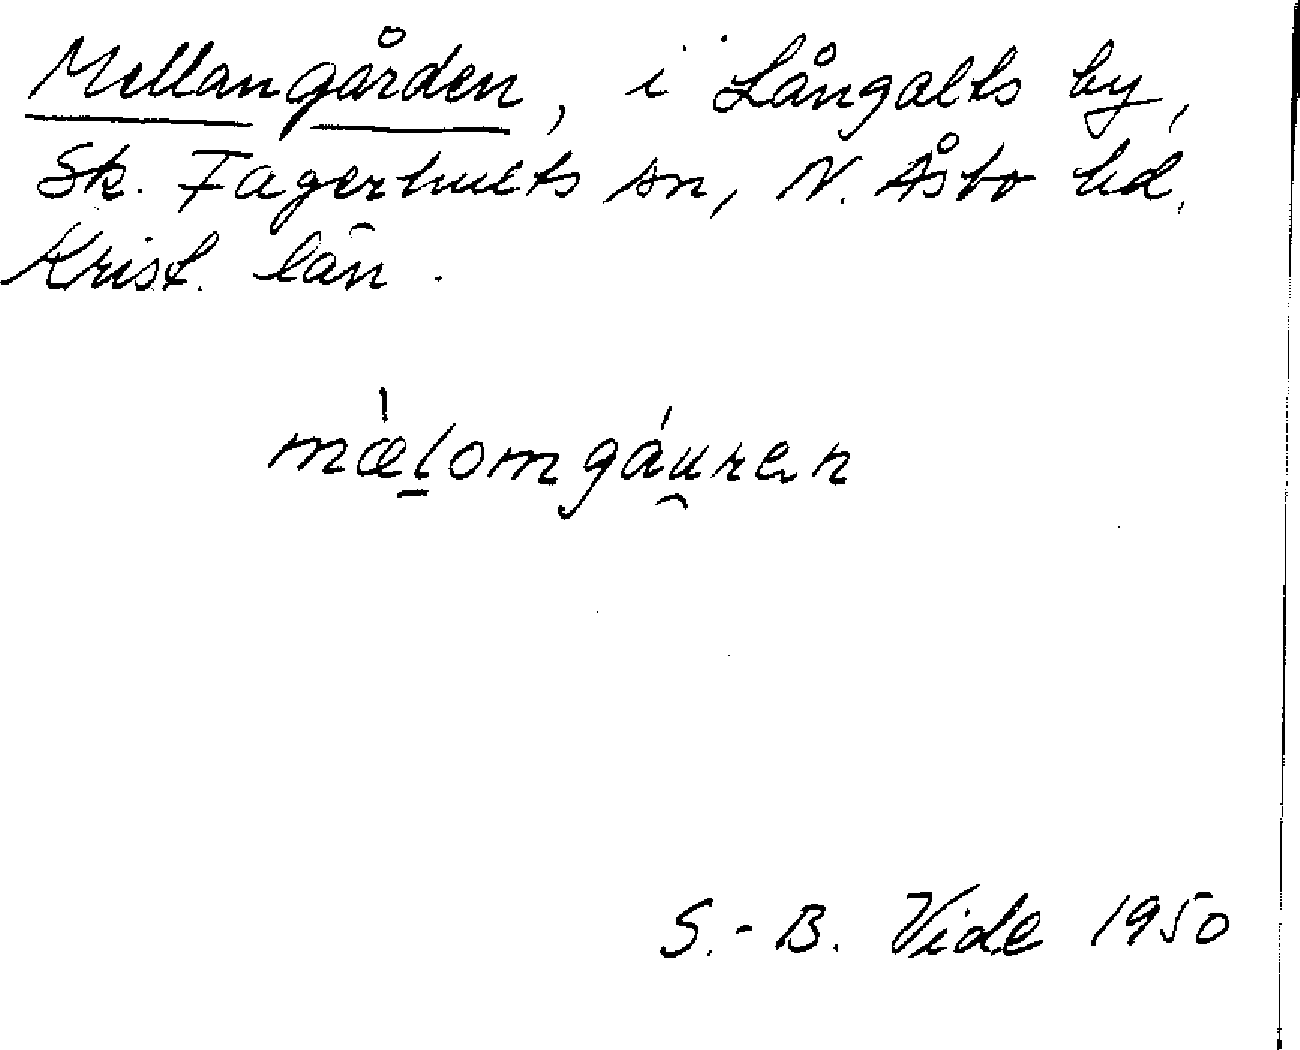 Mellangården, i Långalts by,
Sk. Fagerhults sn, N. Åsbo hd,
Krist. län.
mæ̀lomgáu̯ren
S.-B. Vide 1950